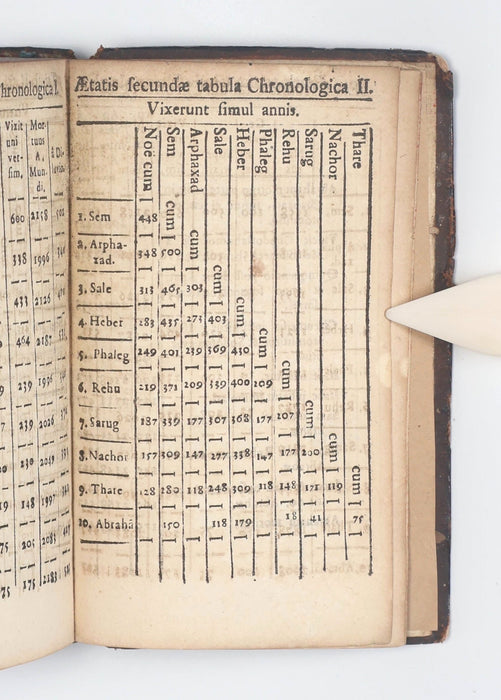 hronologica I.
Vixit Mor- à Di-
uni tuus
ver- A,
sim, Mun-
di.
600 2158
338 1996
433 2126
464 2187
239 1996
239 2026
230 2049
148 1997
75 205 2083
75 175 2183
Ætatis ſecundæ tabula Chronologica II.
Vixerunt ſimul annis.
Noë cum Sem Arphaxad Sale Heber Phaleg Rehu Sarug Nachor Thare
1. Sem 448 cum
2. Arpha- 348 500 cum
xad.
3. Sale 313 465 303 cum
4. Heber 283 435 273 403 cum
5. Phaleg 249 401 239 369 430 cum
6. Rehu 219 371 209 339 400 209 cum
7. Sarug 187 339 177 307 368 177 207 cum
8. Nachor 157 309 147 277 338 147 177 200 cum
9. Thare 128 280 118 248 309 118 148 171 119 cum
10. Abrahã 150 118 179 18 41 75